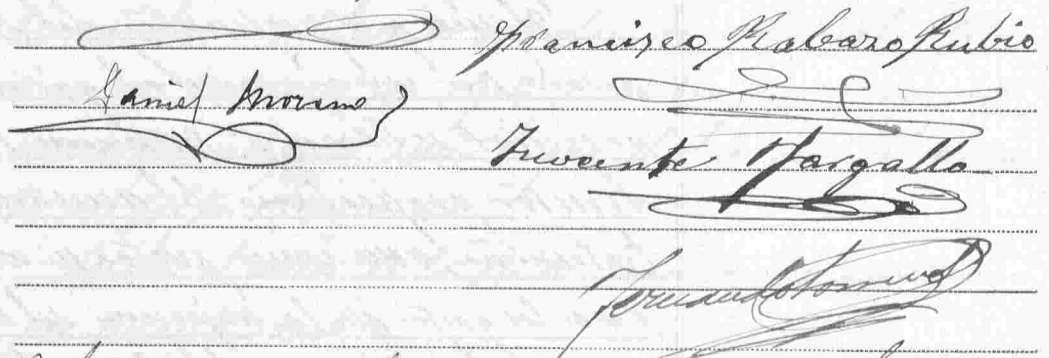 Francisco Rabazo Rubio
Daniel Moreno
Inocente Margallo
Fernando